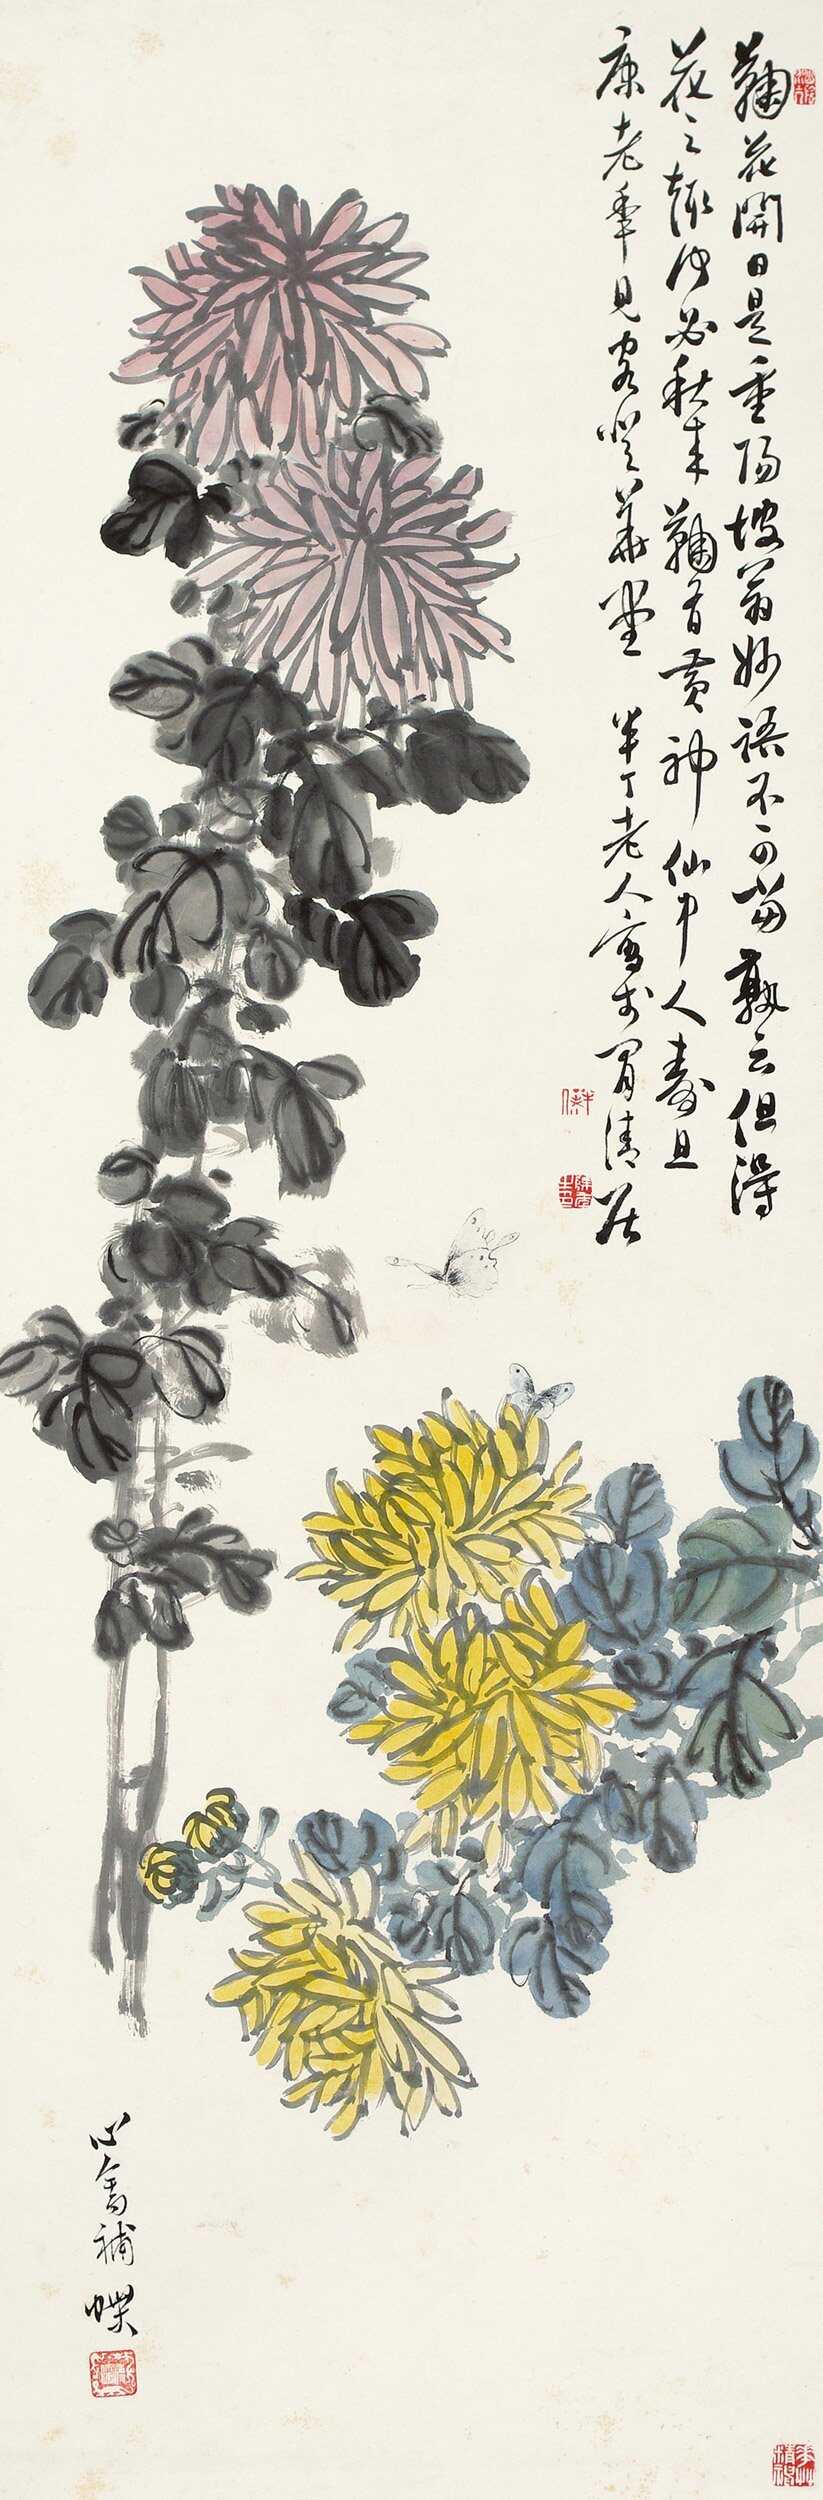 鞠花開日是重陽坡翁妙語不可當孰云但得
花之趣何必秋來鞠有黃神仙中人壽且
康老年見客登華堂 半丁老人寫於聞清居
心畬補蝶